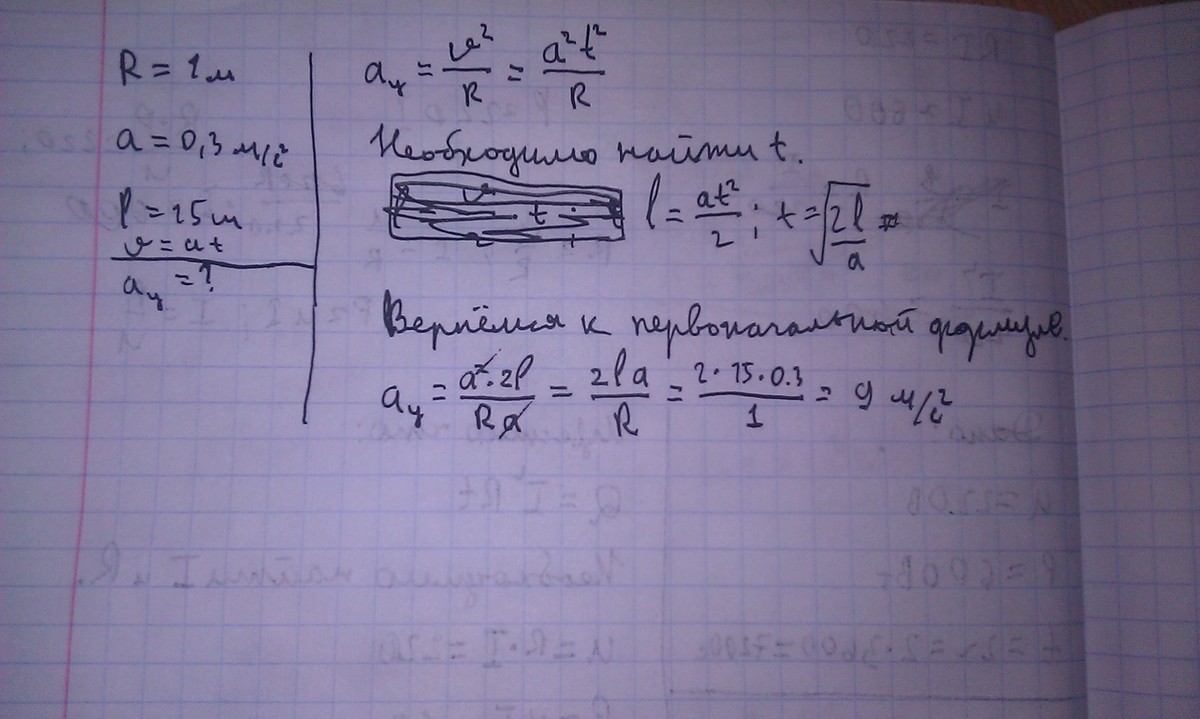 R = 1 м
a = 0,3 м/с²
l = 15 м
v = at
aц = ?
aц = v²/R = a²t²/R
Необходимо найти t.
l = at²/2 ; t = √(2l/a)
Вернёмся к первоначальной формуле.
aц = a²·2l/Ra = 2la/R = 2·15·0.3/1 = 9 м/с²